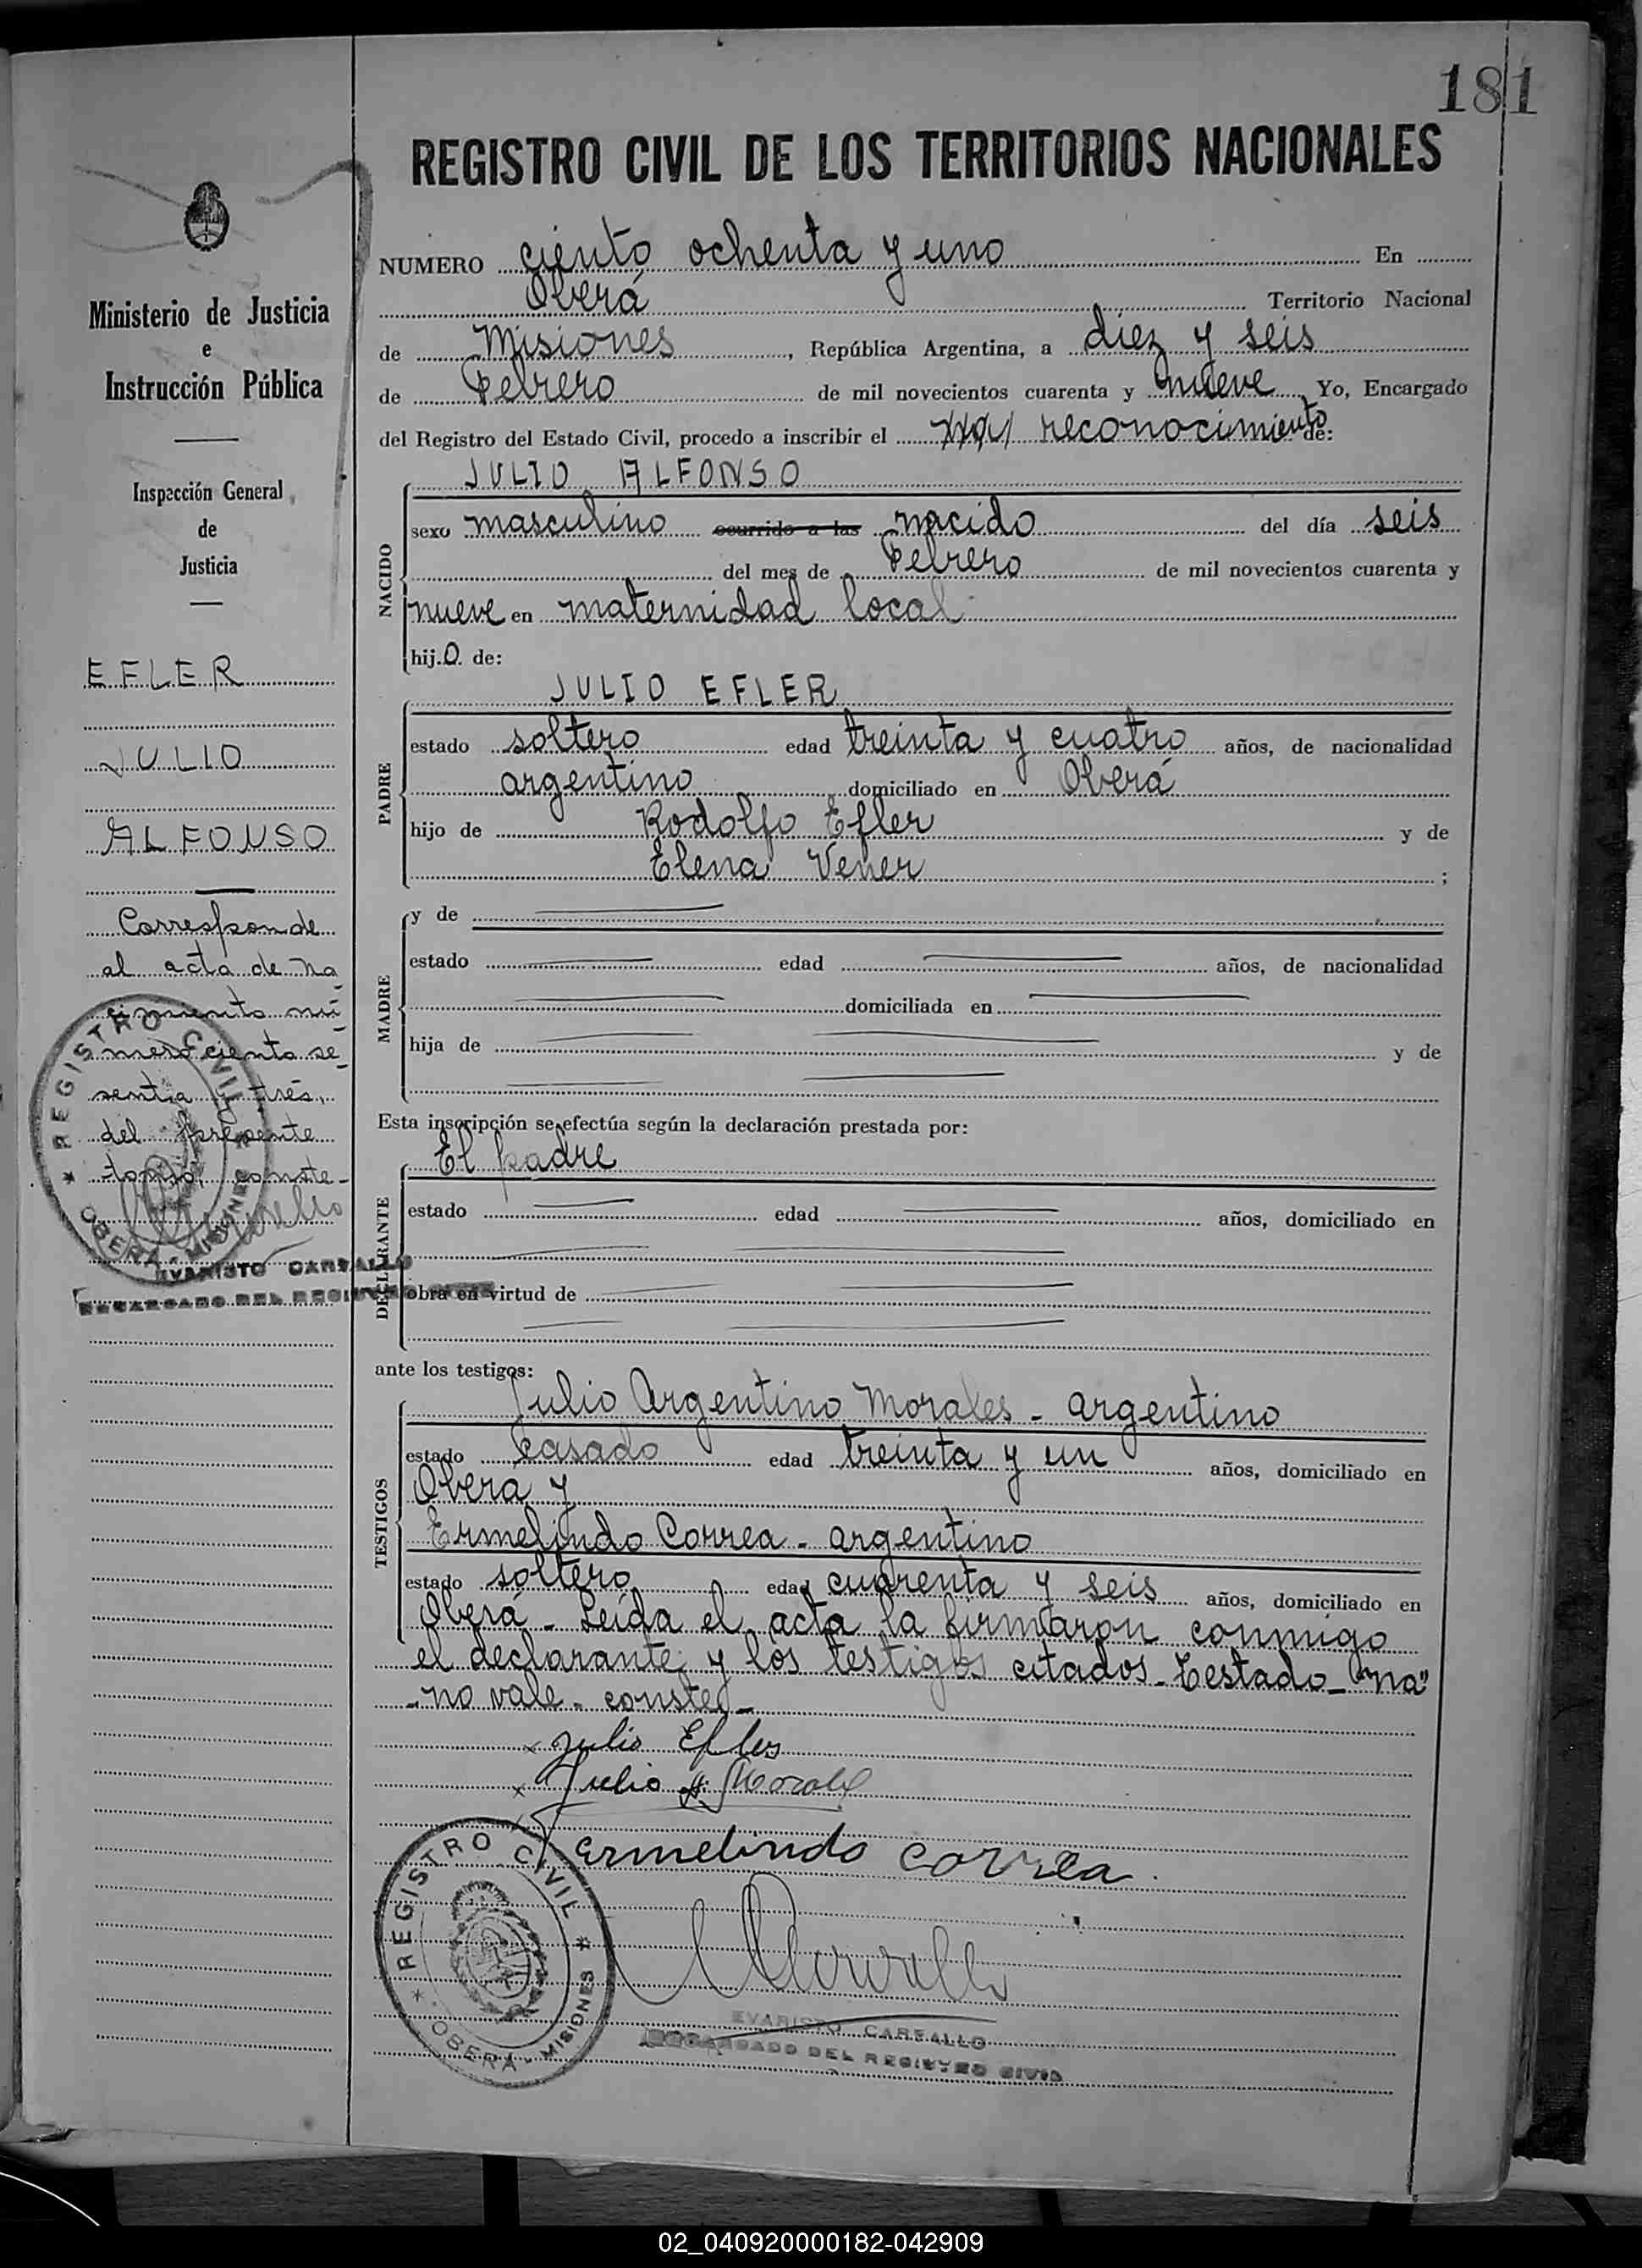 181
REGISTRO CIVIL DE LOS TERRITORIOS NACIONALES
NUMERO ciento ochenta y uno En
Oberá Territorio Nacional
de Misiones, República Argentina, a diez y seis
de Febrero de mil novecientos cuarenta y nueve, Yo, Encargado
del Registro del Estado Civil, procedo a inscribir el na reconocimiento de:
JULIO ALFONSO
NACIDO
sexo masculino ocurrido a las nacido del día seis
del mes de Febrero de mil novecientos cuarenta y
nueve en maternidad local
hijo de:
JULIO EFLER
PADRE
estado soltero edad treinta y cuatro años, de nacionalidad
argentino domiciliado en Oberá
hijo de Rodolfo Efler y de
Elena Vener ;
MADRE
y de
estado edad años, de nacionalidad
domiciliada en
hija de y de
Esta inscripción se efectúa según la declaración prestada por:
DECLARANTE
El padre
estado edad años, domiciliado en
obra en virtud de
ante los testigos:
TESTIGOS
Julio Argentino Morales - argentino
estado casado edad treinta y un años, domiciliado en
Obera y
Ermelindo Correa - argentino
estado soltero edad cuarenta y seis años, domiciliado en
Oberá - Leída el acta la firmaron conmigo
el declarante y los testigos citados - Testado - "na"
- no vale - conste -
x Julio Efler
x Julio A. Morales
Ermelindo Correa
REGISTRO CIVIL
* OBERÁ - MISIONES *
EVARISTO CARBALLO
ENCARGADO DEL REGISTRO CIVIL
Ministerio de Justicia
e
Instrucción Pública
Inspección General
de
Justicia
EFLER
JULIO
ALFONSO
Corresponde
al acta de na-
cimiento nú-
mero ciento se-
senta y tres,
del presente
tomo, conste-
REGISTRO CIVIL
* OBERÁ - MISIONES *
EVARISTO CARBALLO
ENCARGADO DEL REGISTRO CIVIL
02_040920000182-042909